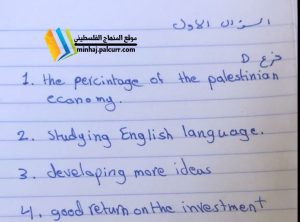 السؤال الأول
موقع المنهاج الفلسطيني
minhaj.palcurr.com
فرع D
1. the percintage of the palestinian
economy.
2. studying English language.
3. developing more ideas
4. good return on the investment